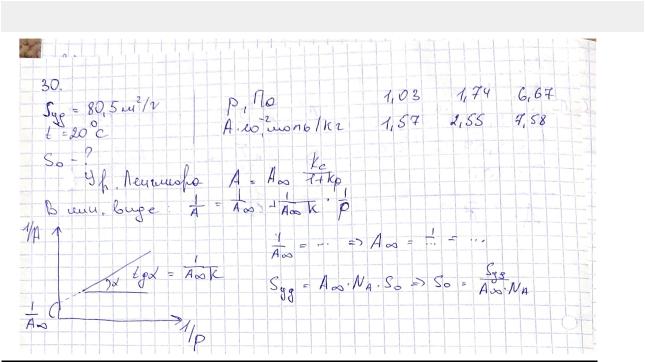 30.
Sуд = 80,5 м²/г
t = 20°C
S₀ - ?
p, Па 1,03 1,74 6,67
A·10⁻², моль/кг 1,57 2,55 7,58
Ур. Ленгмюра A = A∞ kc/1+kp
В лин. виде: 1/A = 1/A∞ + 1/A∞K · 1/p
1/A
tgα = 1/A∞K
α
1/A∞
1/p
1/A∞ = ... => A∞ = 1/... = ...
Sуд = A∞·NA·S₀ => S₀ = Sуд/A∞·NA